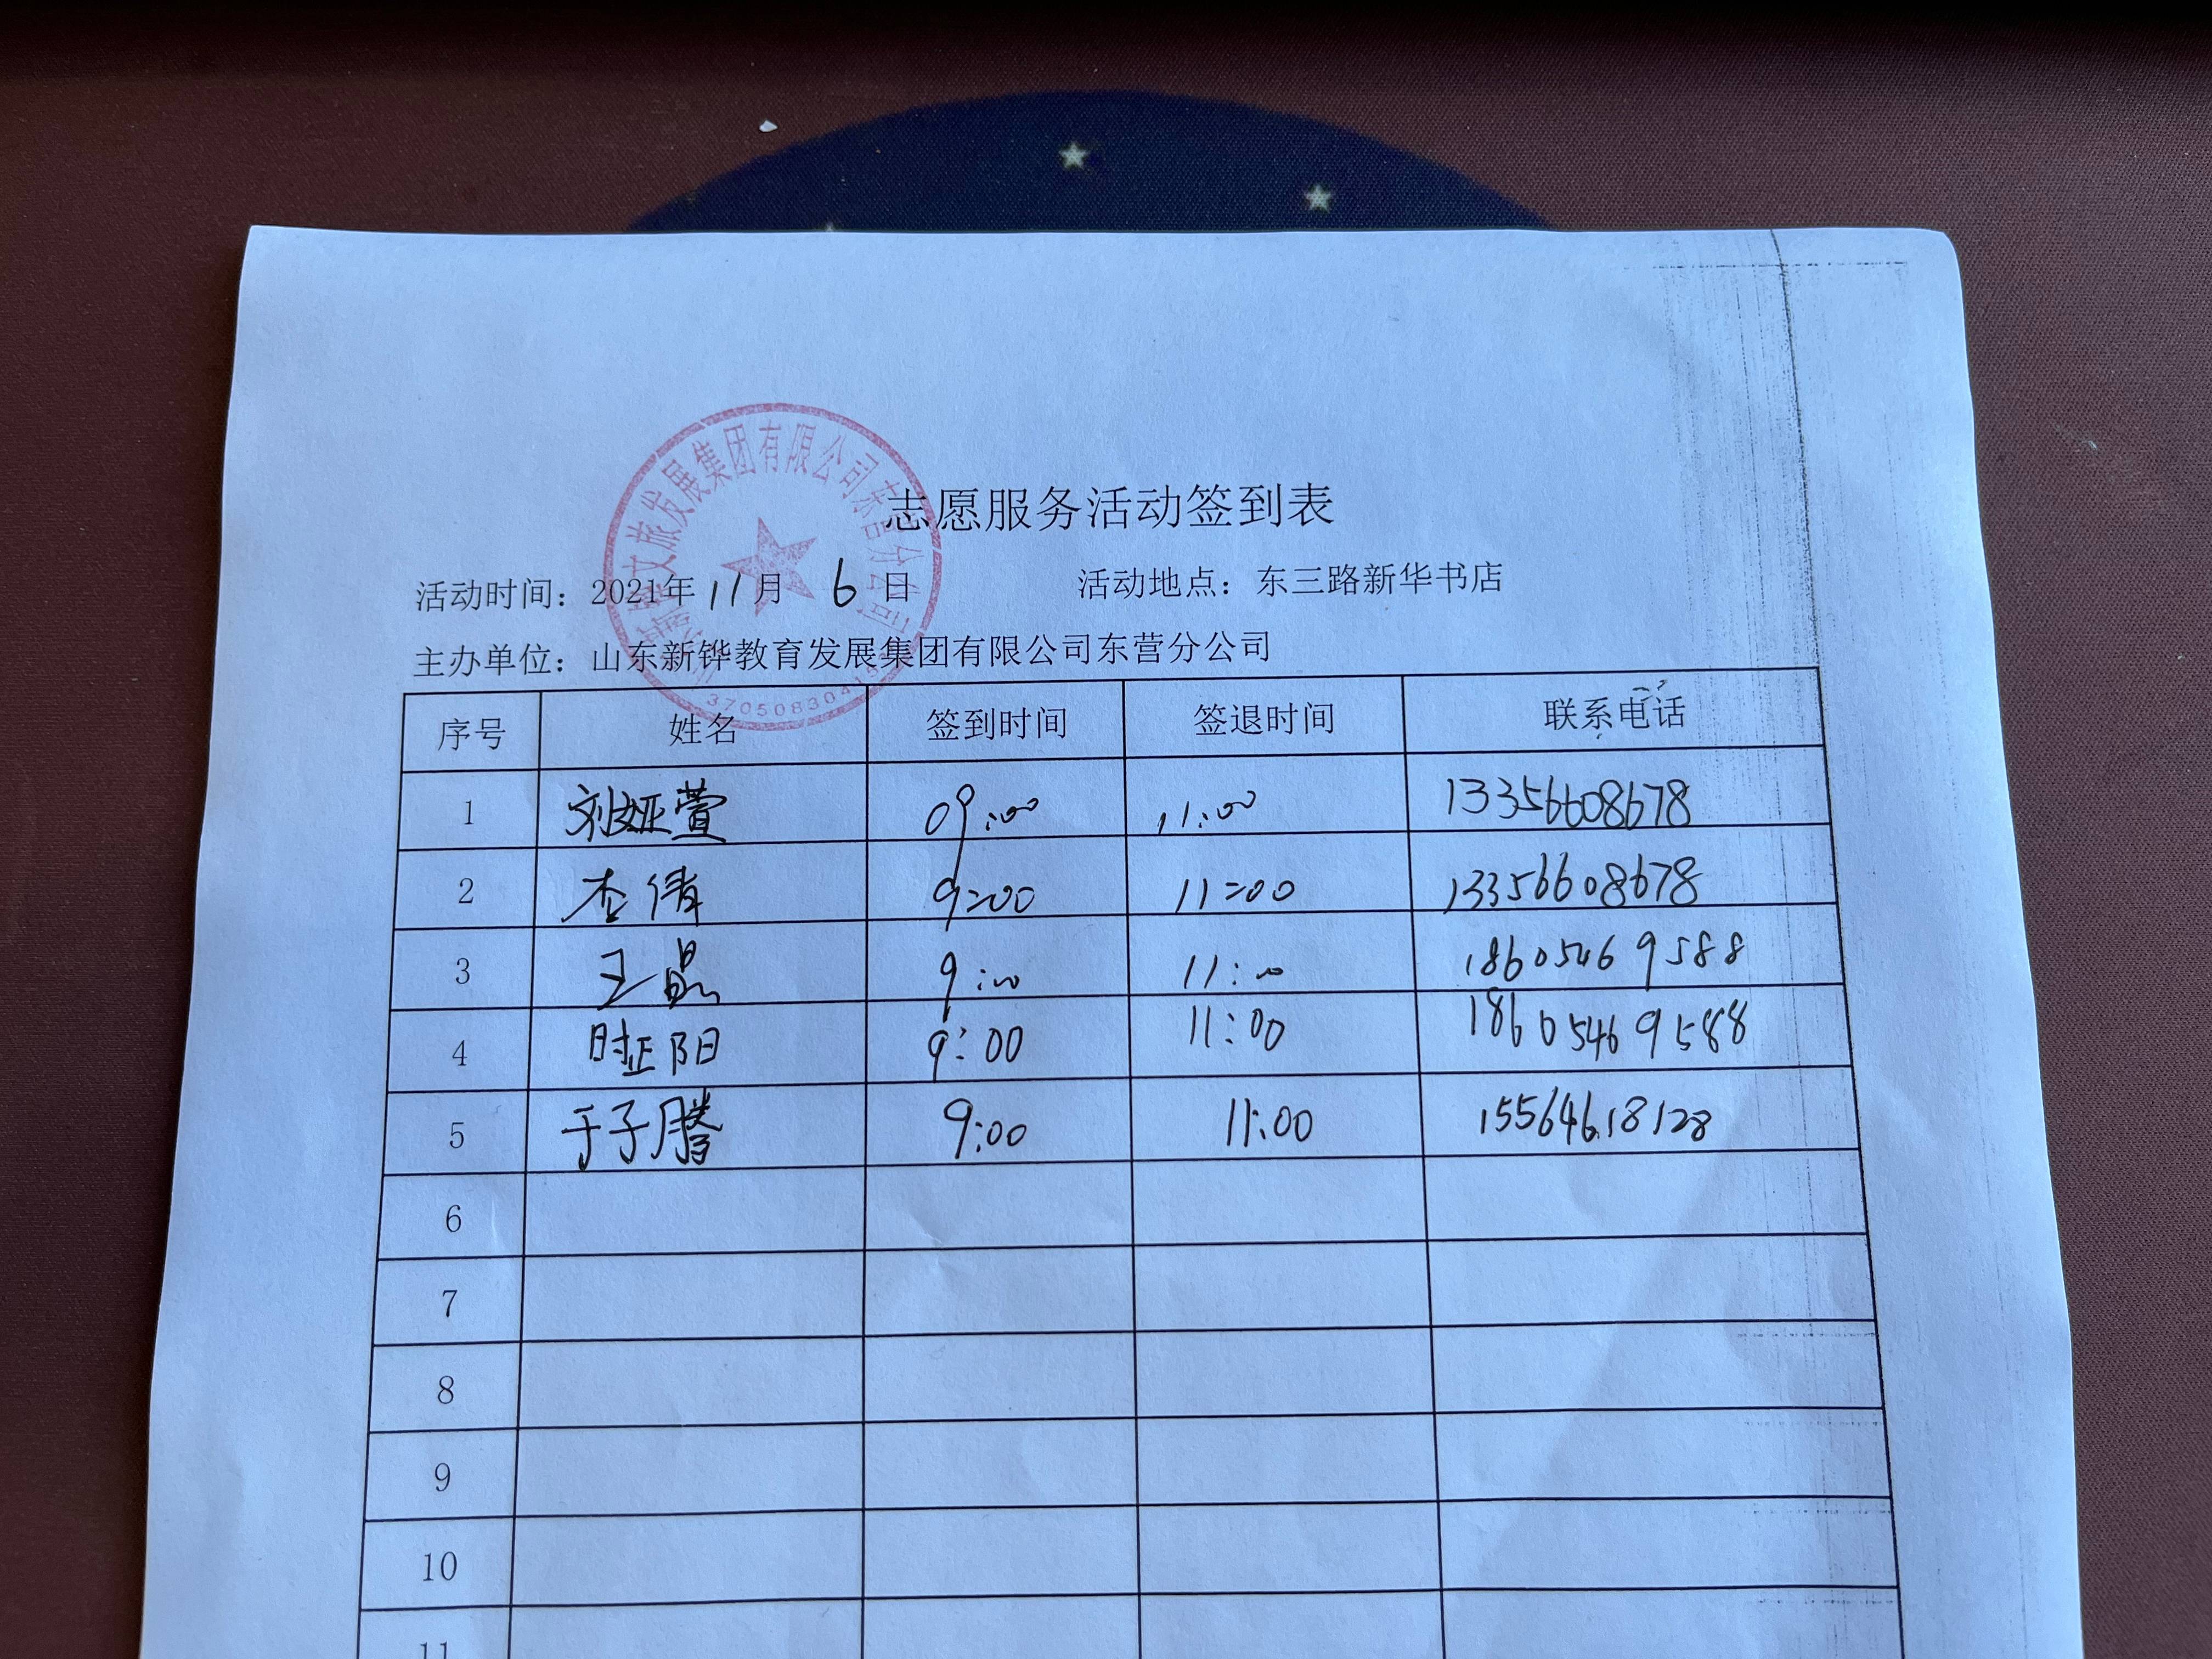 志愿服务活动签到表
活动时间：2021年11月6日 活动地点：东三路新华书店
主办单位：山东新铧教育发展集团有限公司东营分公司
文旅发展集团有限公司东营分公司
序号 姓名 签到时间 签退时间 联系电话
1 刘娅萱 09:00 11:00 13356608678
2 杏倩 9:00 11:00 13356608678
3 王晶 9:00 11:00 18605469588
4 时正阳 9:00 11:00 18605469588
5 于子腾 9:00 11:00 15564618128
6
7
8
9
10
11